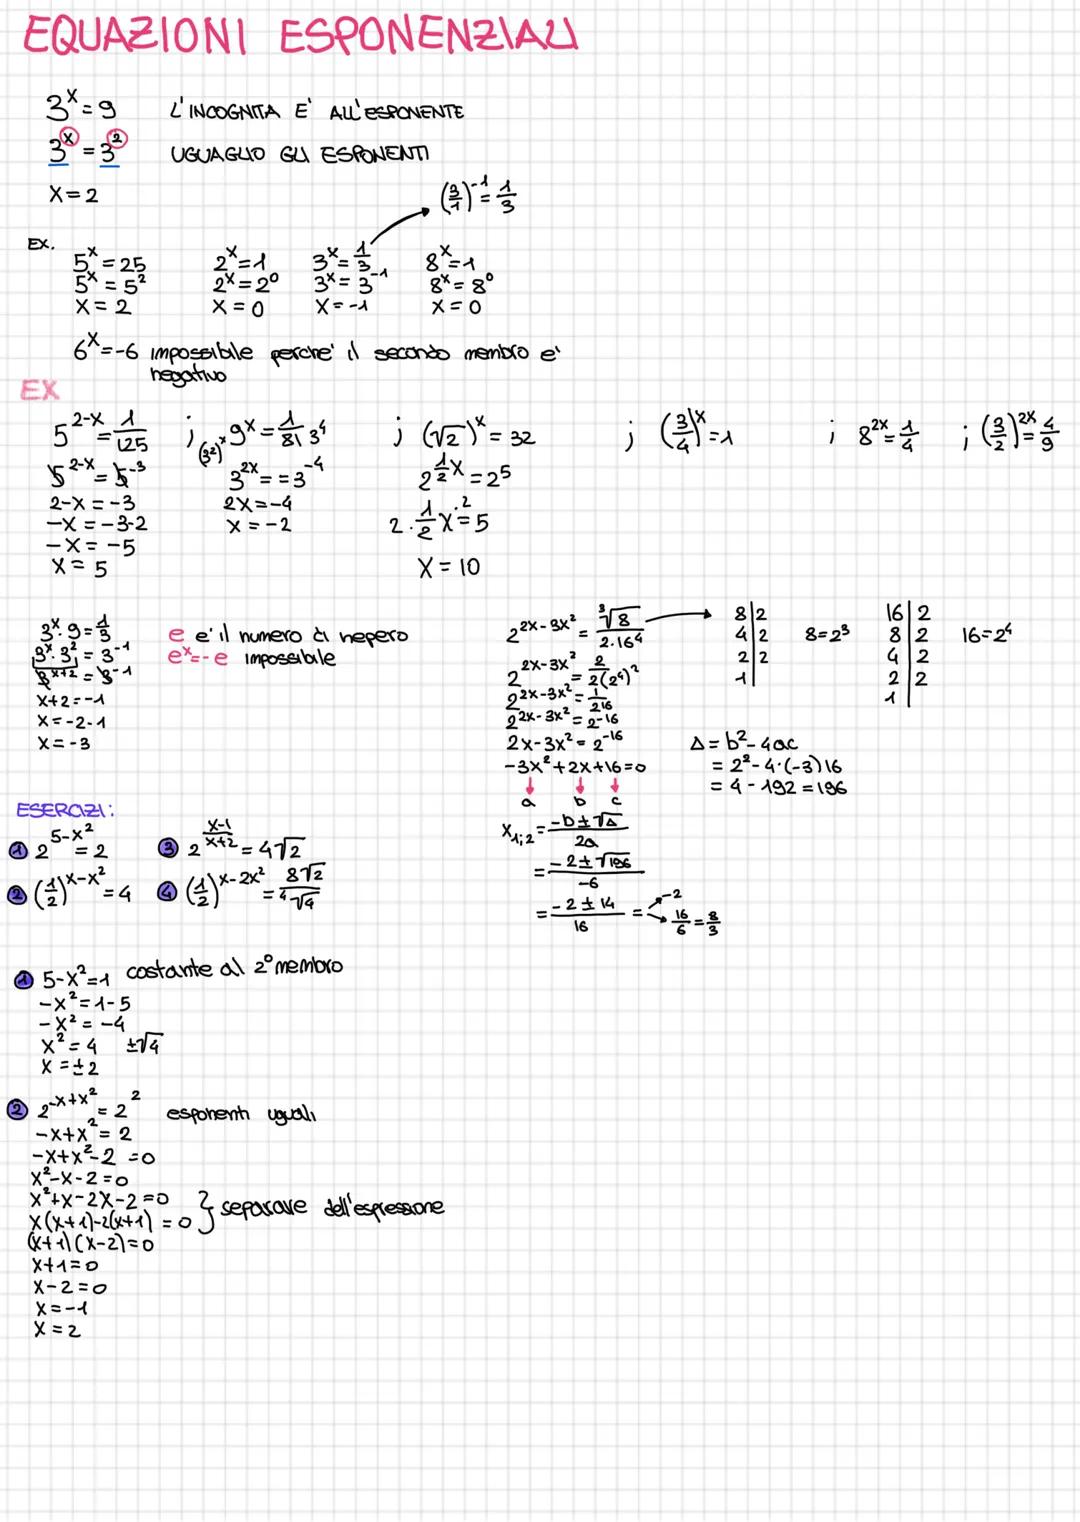 EQUAZIONI ESPONENZIALI
3^x = 9 L'INCOGNITA E' ALL'ESPONENTE
3^x = 3^2 UGUAGLIO GLI ESPONENTI
x = 2
(3/1)^-1 = 1/3
EX.
5^x = 25
5^x = 5^2
x = 2
2^x = 1
2^x = 2^0
x = 0
3^x = 1/3
3^x = 3^-1
x = -1
8^x = 1
8^x = 8^0
x = 0
6^x = -6 impossibile perche' il secondo membro e'
negativo
EX
5^2-x = 1/125 ; (3^2)^x 9^x = 1/81 3^4 ; (√2)^x = 32 ; (3/4)^x = 1 ; 8^2x = 1/4 ; (3/2)^2x = 4/9
5^2-x = 5^-3
2-x = -3
-x = -3-2
-x = -5
x = 5
3^2x = = 3^-4
2x = -4
x = -2
2^1/2 x = 2^5
2 · 1/2 x = 5 · 2
x = 10
3^x · 9 = 1/3
3^x · 3^2 = 3^-1
3^x+2 = 3^-1
x+2 = -1
x = -2-1
x = -3
e e' il numero di nepero
e^x = -e impossibile
2^2x-3x^2 = ∛8 / 2·16^4
2^2x-3x^2 = 2 / 2(2^4)^2
2^2x-3x^2 = 1/2^16
2^2x-3x^2 = 2^-16
2x-3x^2 = 2^-16
-3x^2+2x+16=0
a b c
x1;2 = -b±√Δ / 2a
= -2±√196 / -6
= -2±14 / 16 = -2
16/6 = 8/3
8|2
4|2
2|2
1|
8=2^3
16|2
8|2
4|2
2|2
1|
16=2^4
Δ = b^2-4ac
= 2^2-4·(-3)16
= 4-192 = 196
ESERCIZI:
1 2^5-x^2 = 2
2 (1/2)^x-x^2 = 4
3 2^x-1/x+2 = 4√2
4 (1/2)^x-2x^2 = 8√2 / ⁴√4
1 5-x^2=1 costante al 2° membro
-x^2 = 1-5
-x^2 = -4
x^2 = 4 ±√4
x = ±2
2 2^-x+x^2 = 2^2 esponenti uguali
-x+x^2 = 2
-x+x^2-2 = 0
x^2-x-2=0
x^2+x-2x-2=0
x(x+1)-2(x+1) = 0 } separare dell'espressione
(x+1)(x-2)=0
x+1=0
x-2=0
x=-1
x=2